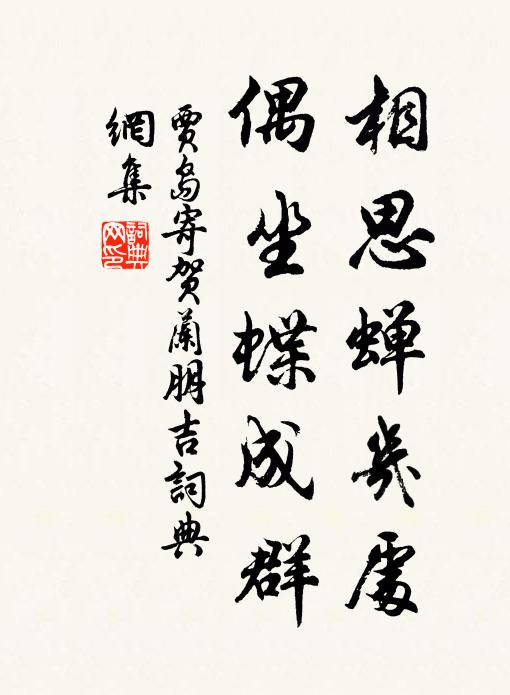 相思蝉几處
偶坐蝶成群
賈島寄贺蘭朋吉詞典
網集
詞典
网印